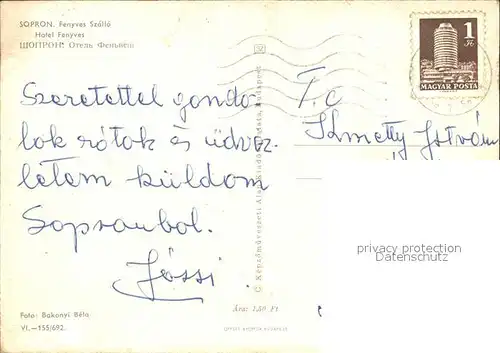 SOPRON. Fenyves Szálló
Hotel Fenyves
ШОПРОН: Отель Феньвеш
Szeretettel gondo-
lok rátok és üdvöz-
letem küldöm
Sopronbol.
Jóssi
Foto: Bakonyi Béla
VI.—155/692.
C Képzőművészeti Alap Kiadóvállalata, Budapest
Ára: 1,50 Ft
1 Ft
MAGYAR POSTA
T.c
Kmetty István
privacy protection
Datenschutz